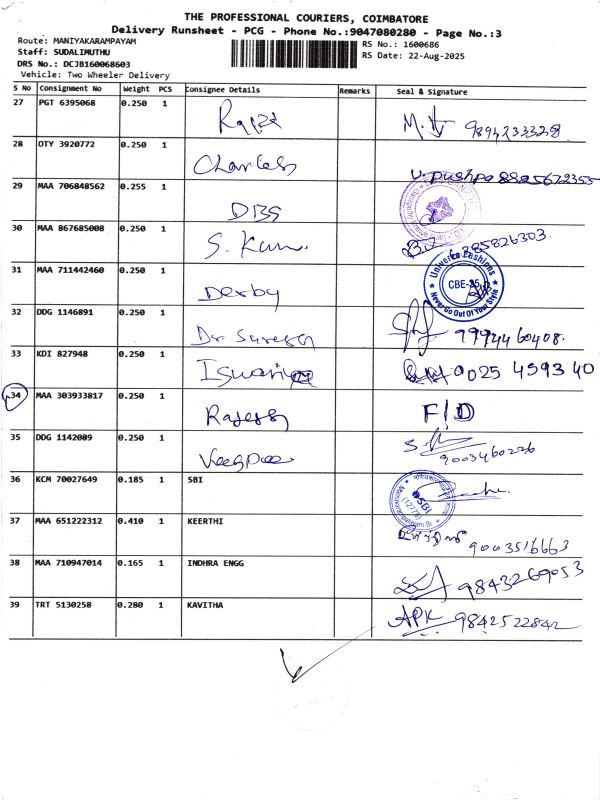 THE PROFESSIONAL COURIERS, COIMBATORE
Delivery Runsheet - PCG - Phone No.:9047080280 - Page No.:3
Route: MANIYAKARAMPAYAM
RS No.: 1600686
Staff: SUDALIMUTHU
RS Date: 22-Aug-2025
DRS No.: DCJB160068603
Vehicle: Two Wheeler Delivery
S No Consignment No Weight PCS Consignee Details Remarks Seal & Signature
27 PGT 6395068 0.250 1 9894233328
28 OTY 3920772 0.250 1 Charles V. pushpa 8825672355
29 MAA 706848562 0.255 1 DBS
30 MAA 867685008 0.250 1 S. Kum
31 MAA 711442460 0.250 1 Derby Universe Fashions CBE-25 Never Go Out Of Your Style
32 DDG 1146891 0.250 1 Dr. Suresh 9994460408.
33 KDI 827948 0.250 1 Iswariya 0025 459340
34 MAA 303933817 0.250 1 Rajesh F/D
35 DDG 1142089 0.250 1 9003460226
36 KCM 70027649 0.185 1 SBI SBI
37 MAA 651222312 0.410 1 KEERTHI 9003516663
38 MAA 710947014 0.165 1 INDHRA ENGG 9843269053
39 TRT 5130258 0.280 1 KAVITHA APK 9842522842